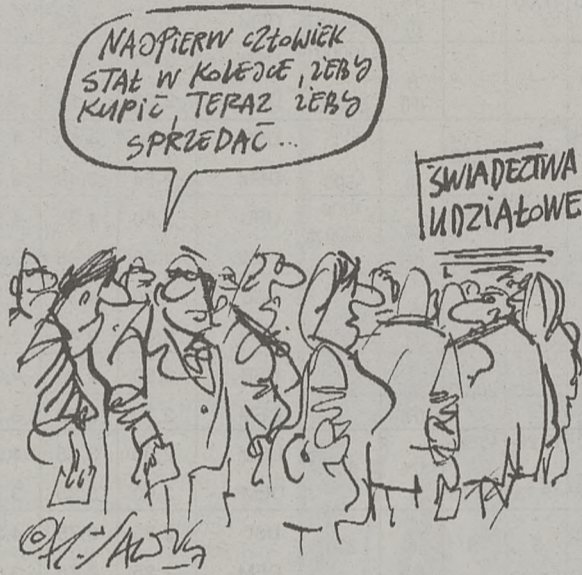 NAJPIERW CZŁOWIEK
STAŁ W KOLEJCE, ŻEBY
KUPIĆ, TERAZ ŻEBY
SPRZEDAĆ...
ŚWIADECTWA
UDZIAŁOWE